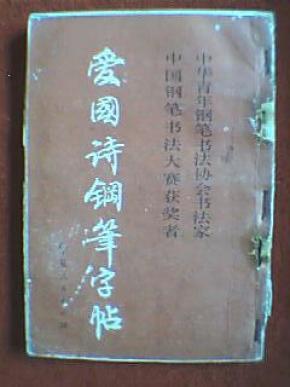 中华青年钢笔书法协会书法家
中国钢笔书法大赛获奖者
愛國诗鋼筆字帖